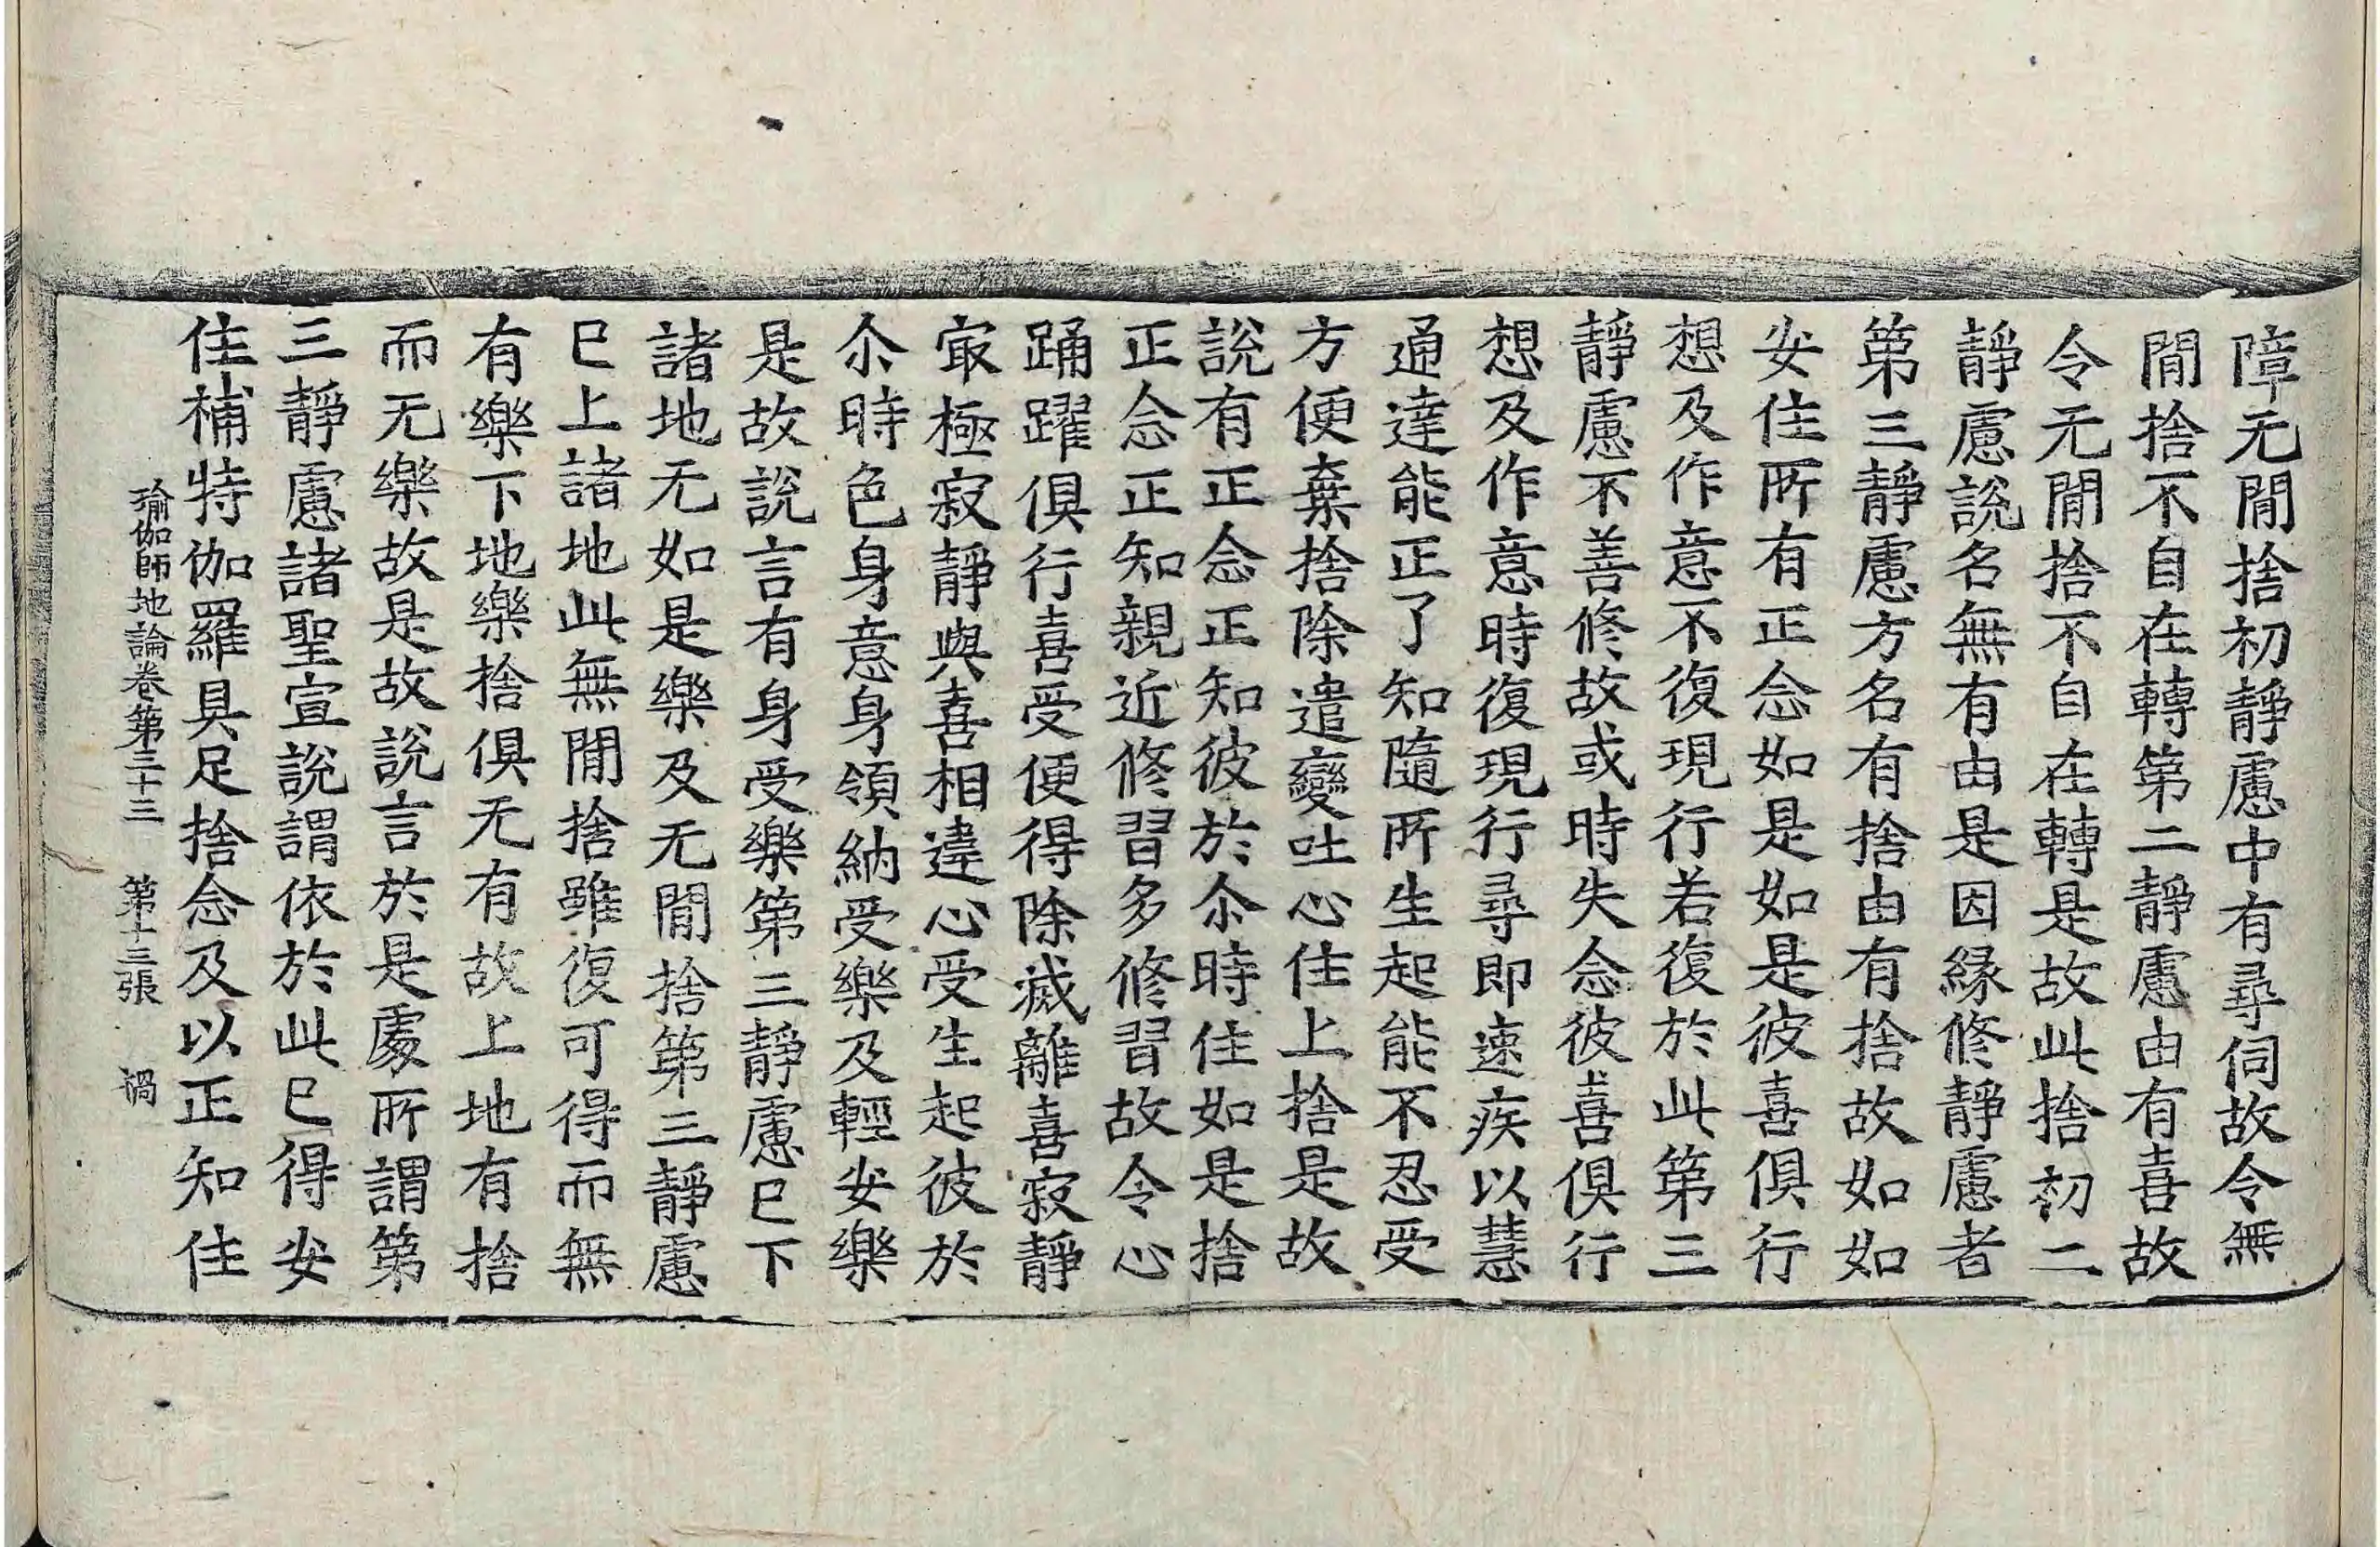 障无閒捨初靜慮中有尋伺故令無
閒捨不自在轉第二靜慮由有喜故
令无閒捨不自在轉是故此捨初二
靜慮說名無有由是因緣修靜慮者
第三靜慮方名有捨由有捨故如如
安住所有正念如是如是彼喜俱行
想及作意不復現行若復於此第三
靜慮不善修故或時失念彼喜俱行
想及作意時復現行尋即速疾以慧
通達能正了知隨所生起能不忍受
方便棄捨除遣變吐心住上捨是故
說有正念正知彼於尒時住如是捨
正念正知親近修習多修習故令心
踊躍俱行喜受便得除滅離喜寂靜
㝡極寂靜與喜相違心受生起彼於
尒時色身意身領納受樂及輕安樂
是故說言有身受樂第三靜慮已下
諸地无如是樂及无閒捨第三靜慮
已上諸地此無閒捨雖復可得而無
有樂下地樂捨俱无有故上地有捨
而无樂故是故說言於是處所謂第
三靜慮諸聖宣說謂依於此已得安
住補特伽羅具足捨念及以正知住
瑜伽師地論卷第三十三　第十三張　禍